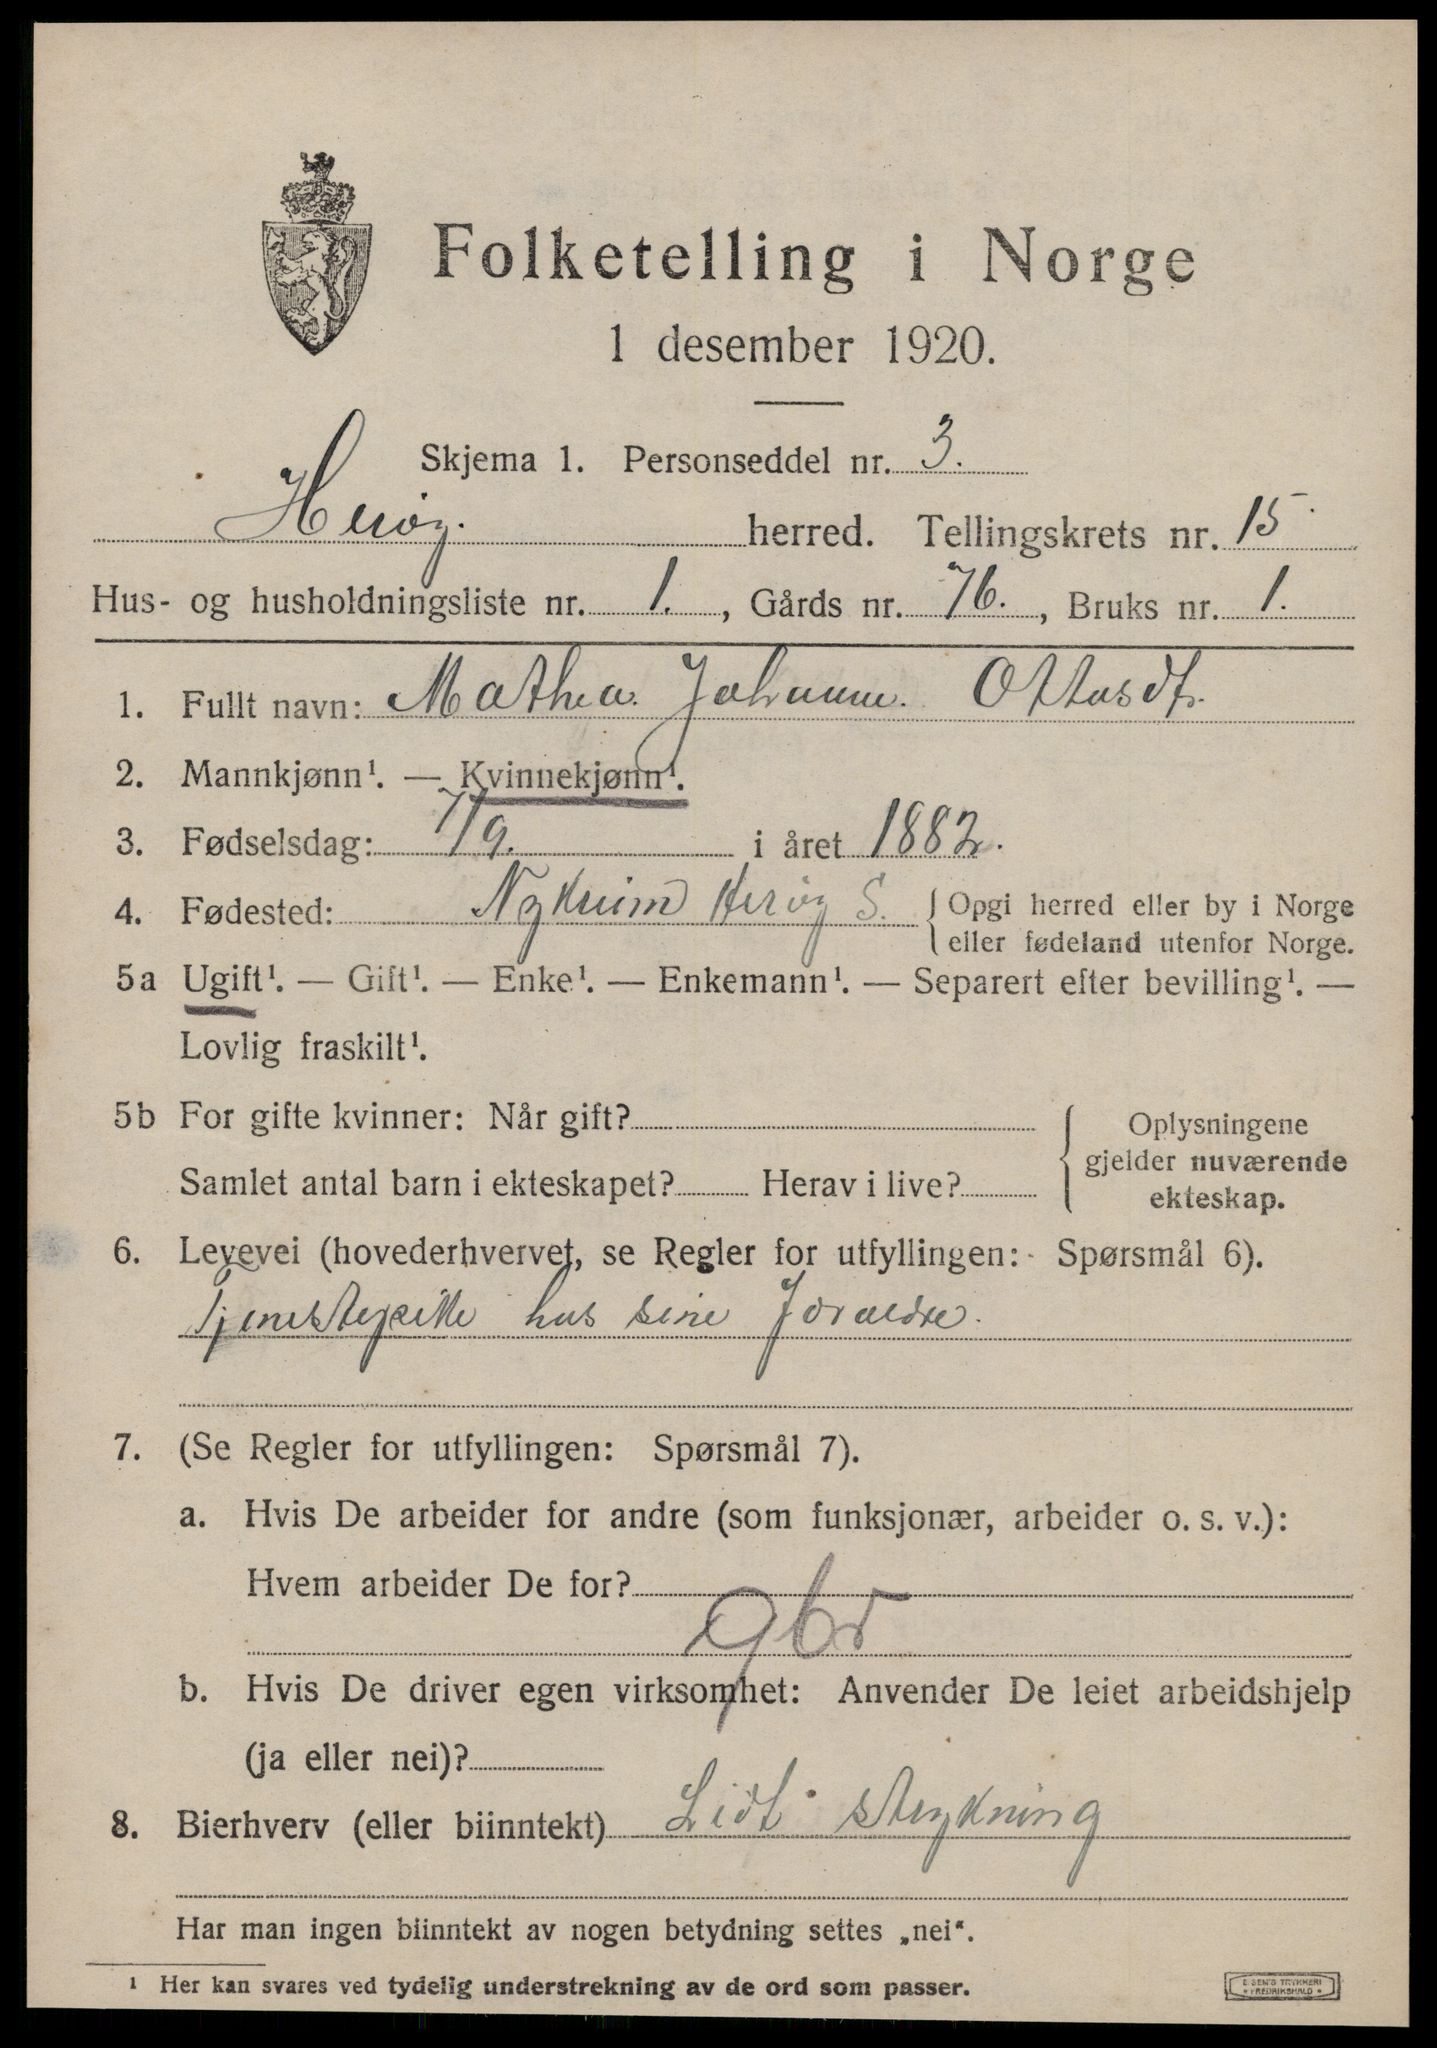 Folketelling i Norge
1 desember 1920.
Skjema 1. Personseddel nr. 3.
Herøy. herred. Tellingskrets nr. 15
Hus- og husholdningsliste nr. 1., Gårds nr. 76., Bruks nr. 1.
1. Fullt navn: Mathea Johanne Ottasdtr.
2. Mannkjønn¹. — Kvinnekjønn¹.
3. Fødselsdag: 7/9. i året 1882.
4. Fødested: Nykreim Herøy S. { Opgi herred eller by i Norge
eller fødeland utenfor Norge.
5a Ugift¹. — Gift¹. — Enke¹. — Enkemann¹. — Separert efter bevilling¹. —
Lovlig fraskilt¹.
5b For gifte kvinner: Når gift? { Oplysningene
gjelder nuværende
Samlet antal barn i ekteskapet? Herav i live?
ekteskap.
6. Levevei (hovederhvervet, se Regler for utfyllingen: Spørsmål 6).
Tjenestepike hos sine Foraldre.
7. (Se Regler for utfyllingen: Spørsmål 7).
a. Hvis De arbeider for andre (som funksjonær, arbeider o. s. v.):
Hvem arbeider De for?
gbr
b. Hvis De driver egen virksomhet: Anvender De leiet arbeidshjelp
(ja eller nei)?
8. Bierhverv (eller biinntekt) Lidt strykning
Har man ingen biinntekt av nogen betydning settes „nei“.
¹ Her kan svares ved tydelig understrekning av de ord som passer.
TRYKKERI
FREDRIKSHALD